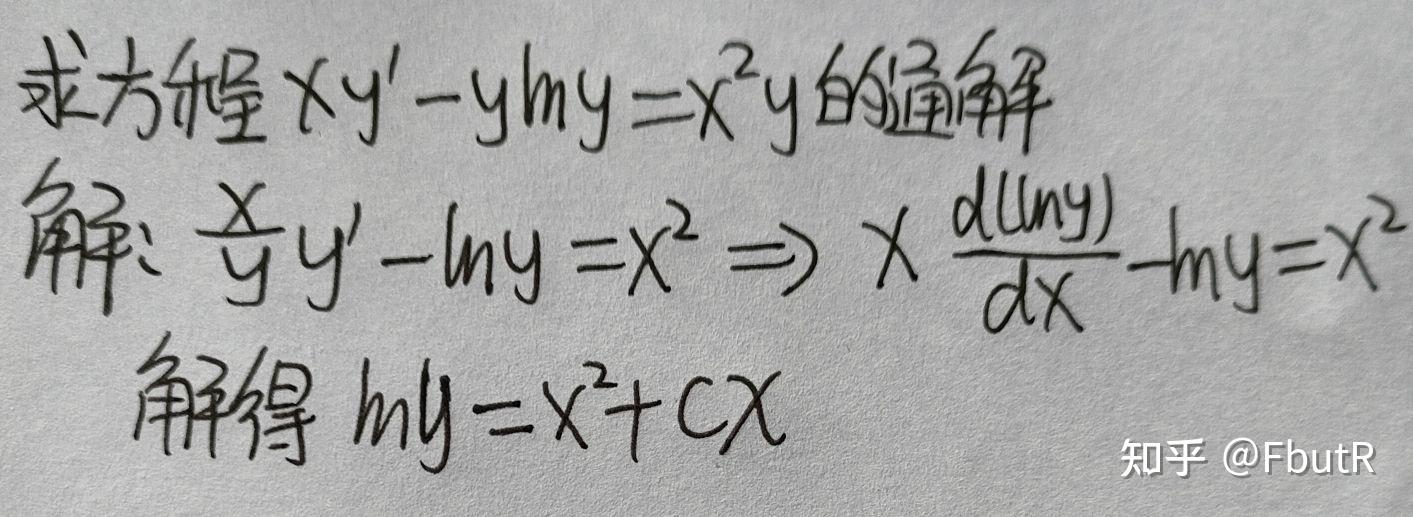 求方程 xy' - ylny = x²y 的通解
解: x/y y' - lny = x² ⇒ x d(lny)/dx - lny = x²
解得 lny = x² + Cx
知乎 @FbutR